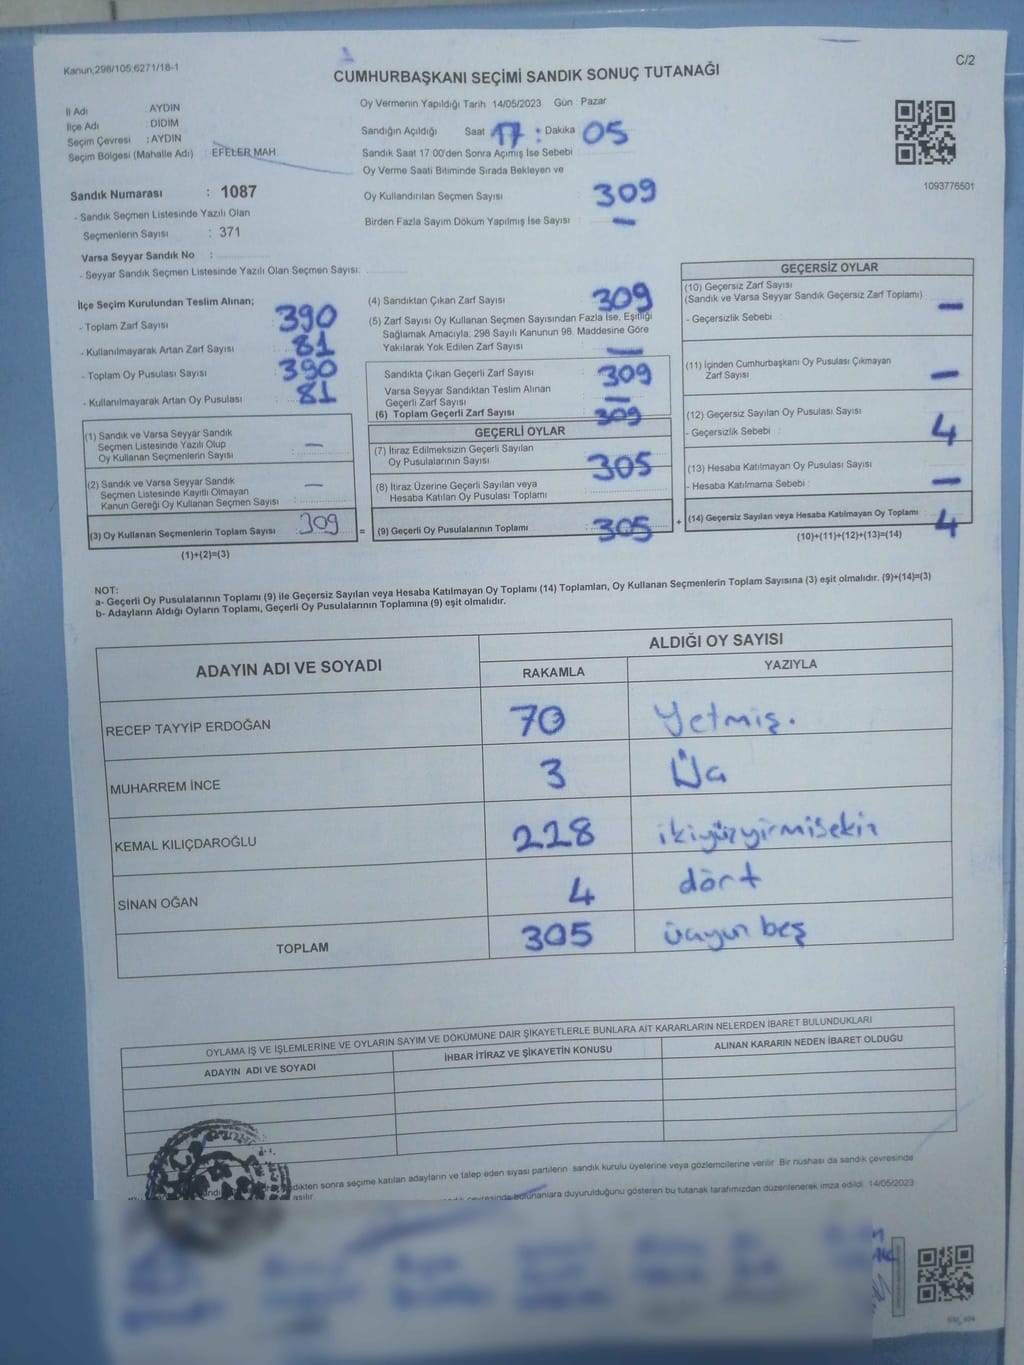 Kanun;298/105;6271/18-1
C/2
CUMHURBAŞKANI SEÇİMİ SANDIK SONUÇ TUTANAĞI
İl Adı AYDIN
İlçe Adı : DİDİM
Seçim Çevresi : AYDIN
Seçim Bölgesi (Mahalle Adı) : EFELER MAH.
Oy Vermenin Yapıldığı Tarih 14/05/2023 Gün : Pazar
Sandığın Açıldığı Saat 17 : Dakika 05
Sandık Saat 17:00'den Sonra Açımış İse Sebebi
Oy Verme Saati Bitiminde Sırada Bekleyen ve
Oy Kullandırılan Seçmen Sayısı : 309
Birden Fazla Sayım Döküm Yapılmış İse Sayısı : —
1093776501
Sandık Numarası : 1087
- Sandık Seçmen Listesinde Yazılı Olan
Seçmenlerin Sayısı : 371
Varsa Seyyar Sandık No :
- Seyyar Sandık Seçmen Listesinde Yazılı Olan Seçmen Sayısı:
İlçe Seçim Kurulundan Teslim Alınan;
- Toplam Zarf Sayısı : 390
- Kullanılmayarak Artan Zarf Sayısı : 81
- Toplam Oy Pusulası Sayısı : 390
- Kullanılmayarak Artan Oy Pusulası : 81
(1) Sandık ve Varsa Seyyar Sandık
Seçmen Listesinde Yazılı Olup
Oy Kullanan Seçmenlerin Sayısı : —
(2) Sandık ve Varsa Seyyar Sandık
Seçmen Listesinde Kayıtlı Olmayan
Kanun Gereği Oy Kullanan Seçmen Sayısı : —
(3) Oy Kullanan Seçmenlerin Toplam Sayısı : 309
(1)+(2)=(3)
(4) Sandıktan Çıkan Zarf Sayısı : 309
(5) Zarf Sayısı Oy Kullanan Seçmen Sayısından Fazla İse, Eşitliği
Sağlamak Amacıyla; 298 Sayılı Kanunun 98. Maddesine Göre
Yakılarak Yok Edilen Zarf Sayısı : —
Sandıkta Çıkan Geçerli Zarf Sayısı : 309
Varsa Seyyar Sandıktan Teslim Alınan
Geçerli Zarf Sayısı : —
(6) Toplam Geçerli Zarf Sayısı : 309
GEÇERLİ OYLAR
(7) İtiraz Edilmeksizin Geçerli Sayılan
Oy Pusulalarının Sayısı : 305
(8) İtiraz Üzerine Geçerli Sayılan veya
Hesaba Katılan Oy Pusulası Toplamı :
= (9) Geçerli Oy Pusulalarının Toplamı : 305
GEÇERSİZ OYLAR
(10) Geçersiz Zarf Sayısı
(Sandık ve Varsa Seyyar Sandık Geçersiz Zarf Toplamı) : —
- Geçersizlik Sebebi :
(11) İçinden Cumhurbaşkanı Oy Pusulası Çıkmayan
Zarf Sayısı : —
(12) Geçersiz Sayılan Oy Pusulası Sayısı : 4
- Geçersizlik Sebebi :
(13) Hesaba Katılmayan Oy Pusulası Sayısı : —
- Hesaba Katılmama Sebebi :
+ (14) Geçersiz Sayılan veya Hesaba Katılmayan Oy Toplamı : 4
(10)+(11)+(12)+(13)=(14)
NOT:
a- Geçerli Oy Pusulalarının Toplamı (9) ile Geçersiz Sayılan veya Hesaba Katılmayan Oy Toplamı (14) Toplamları, Oy Kullanan Seçmenlerin Toplam Sayısına (3) eşit olmalıdır. (9)+(14)=(3)
b- Adayların Aldığı Oyların Toplamı, Geçerli Oy Pusulalarının Toplamına (9) eşit olmalıdır.
ADAYIN ADI VE SOYADI
ALDIĞI OY SAYISI
RAKAMLA YAZIYLA
RECEP TAYYİP ERDOĞAN 70 Yetmiş.
MUHARREM İNCE 3 Üç
KEMAL KILIÇDAROĞLU 228 ikiyüzyirmisekiz
SİNAN OĞAN 4 dört
TOPLAM 305 üçyüz beş
OYLAMA İŞ VE İŞLEMLERİNE VE OYLARIN SAYIM VE DÖKÜMÜNE DAİR ŞİKAYETLERLE BUNLARA AİT KARARLARIN NELERDEN İBARET BULUNDUKLARI
ADAYIN ADI VE SOYADI İHBAR İTİRAZ VE ŞİKAYETİN KONUSU ALINAN KARARIN NEDEN İBARET OLDUĞU
sonra seçime katılan adayların ve talep eden siyasi partilerin sandık kurulu üyelerine veya gözlemcilerine verilir. Bir nüshası da sandık çevresinde
asılır.
çevresinde bulunanlara duyurulduğunu gösteren bu tutanak tarafımızdan düzenlenerek imza edildi. 14/05/2023